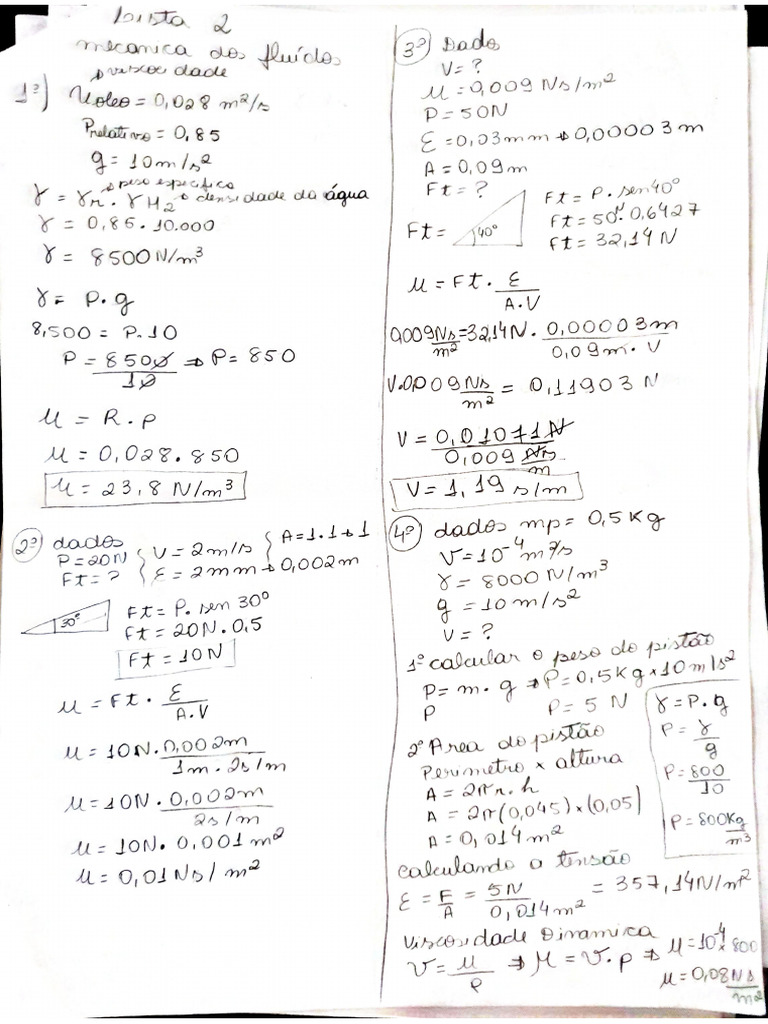 Lista 2
mecanica dos fluídos
viscosidade
1º) νoleo = 0,028 m²/s
Prelativo = 0,85
g = 10 m/s²
peso especifico
γ = γr . γH2 densidade da água
γ = 0,85 . 10.000
γ = 8500 N/m³
γ = P . g
8,500 = P . 10
P = 8500/10 ⇒ P = 850
μ = R . p
μ = 0,028 . 850
μ = 23,8 N/m³
2º) dados
P = 20N
Ft = ?
V = 2 m/s
ε = 2mm → 0,002m
A = 1 . 1 → 1
30º
Ft = P. sen 30º
Ft = 20N . 0,5
Ft = 10N
μ = Ft . ε/A.V
μ = 10N . 0,002m/1m . 2s/m
μ = 10N . 0,002m/2s/m
μ = 10N . 0,001 m²
μ = 0,01 Ns/m²
3º) Dado
V = ?
μ = 0,009 Ns/m²
P = 50N
ε = 0,03mm → 0,00003 m
A = 0,09m
Ft = ?
Ft = 40º
Ft = P. sen40º
Ft = 50N. 0,6427
Ft = 32,14 N
μ = Ft . ε/A.V
0,009 Ns/m² = 32,14N . 0,00003m/0,09m . V
V.0,009 Ns/m² = 0,11903 N
V = 0,01071N/0,009 Ns/m
V = 1,19 s/m
4º) dados mp = 0,5 Kg
ν = 10⁻⁴ m²/s
γ = 8000 N/m³
g = 10 m/s²
V = ?
1º calcular o peso do pistão
P = m . g → P = 0,5 Kg × 10 m/s²
P P = 5 N
2º Area do pistão
Perimetro × altura
A = 2πr.h
A = 2π(0,045) × (0,05)
A = 0,014 m²
γ = P . g
P = γ/g
P = 800/10
P = 800 Kg/m³
calculando a tensão
ε = F/A = 5N/0,014m² = 357,14 N/m²
Viscosidade Dinamica
ν = μ/ρ ⇒ μ = ν . ρ ⇒ μ = 10⁻⁴ × 800
μ = 0,08 Ns/m²